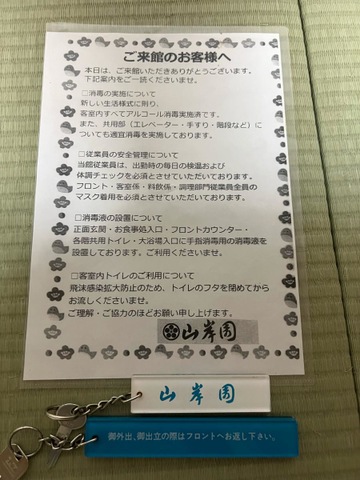 ご来館のお客様へ
本日は、ご来館いただきありがとうございます。
下記案内をご一読くださいませ。
□消毒の実施について
新しい生活様式に則り、
客室内すべてアルコール消毒実施済です。
また、共用部(エレベーター・手すり・階段など)に
ついても適宜消毒を実施しております。
□従業員の安全管理について
当館従業員は、出勤時の毎日の検温および
体調チェックを必須とさせていただいております。
フロント・客室係・料飲係・調理部門従業員全員の
マスク着用を必須とさせていただいております。
□消毒液の設置について
正面玄関・お食事処入口・フロントカウンター・
各階共用トイレ・大浴場入口に手指消毒用の消毒液を
設置しております。ご利用くださいませ。
□客室内トイレのご利用について
飛沫感染拡大防止のため、トイレのフタを閉めてから
お流しくださいませ。
ご理解・ご協力のほどお願い申し上げます。
山岸園
山岸園
御外出、御出立の際はフロントへお返し下さい。